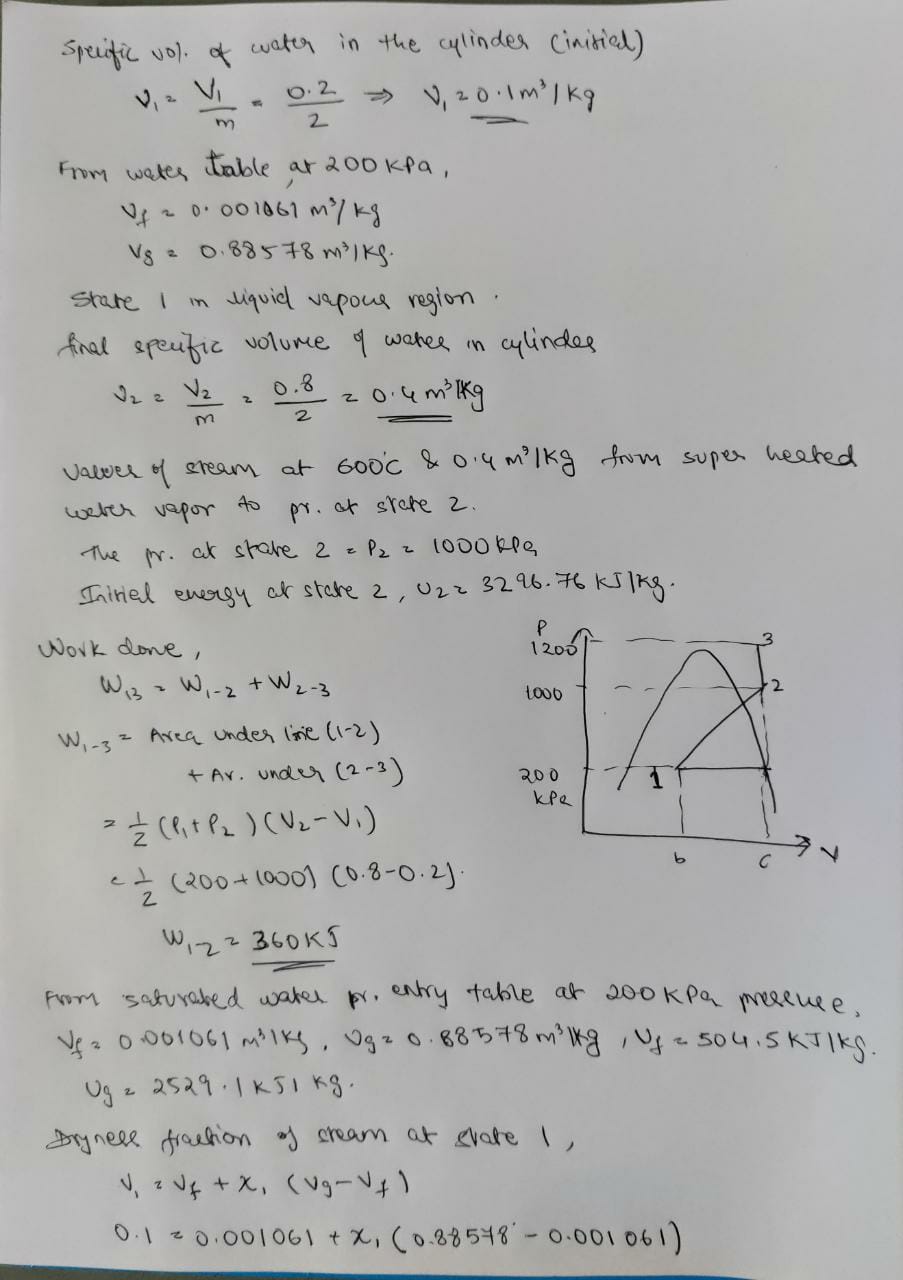 Specific vol. of water in the cylinder (initial)
V₁ = V₁/m = 0.2/2 ⇒ V₁ = 0.1 m³/kg
From water table at 200 kPa,
Vf = 0.001061 m³/kg
Vg = 0.88578 m³/kg.
State 1 in liquid vapour region.
final specific volume of water in cylinder
V₂ = V₂/m = 0.8/2 = 0.4 m³/kg
Values of steam at 600°C & 0.4 m³/kg from super heated
water vapor to pr. at state 2.
The pr. at state 2 = P₂ = 1000 kPa
Initial energy at state 2, U₂ = 3296.76 KJ/kg.
Work done,
W₁₃ = W₁₋₂ + W₂₋₃
W₁₋₃ = Area under line (1-2)
+ Ar. under (2-3)
= 1/2 (P₁+P₂) (V₂-V₁)
= 1/2 (200+1000) (0.8-0.2).
W₁₋₂ = 360KJ
P
1200
3
1000
2
200
kPa
1
b
c
V
From saturated water pr. entry table at 200 kPa pressure,
Vf = 0.001061 m³/kg, Vg = 0.88578 m³/kg, Uf = 504.5 KJ/kg.
Ug = 2529.1 KJ/kg.
Dryness fraction of steam at state 1,
V₁ = Vf + x₁ (Vg-Vf)
0.1 = 0.001061 + x₁ (0.88578 - 0.001061)